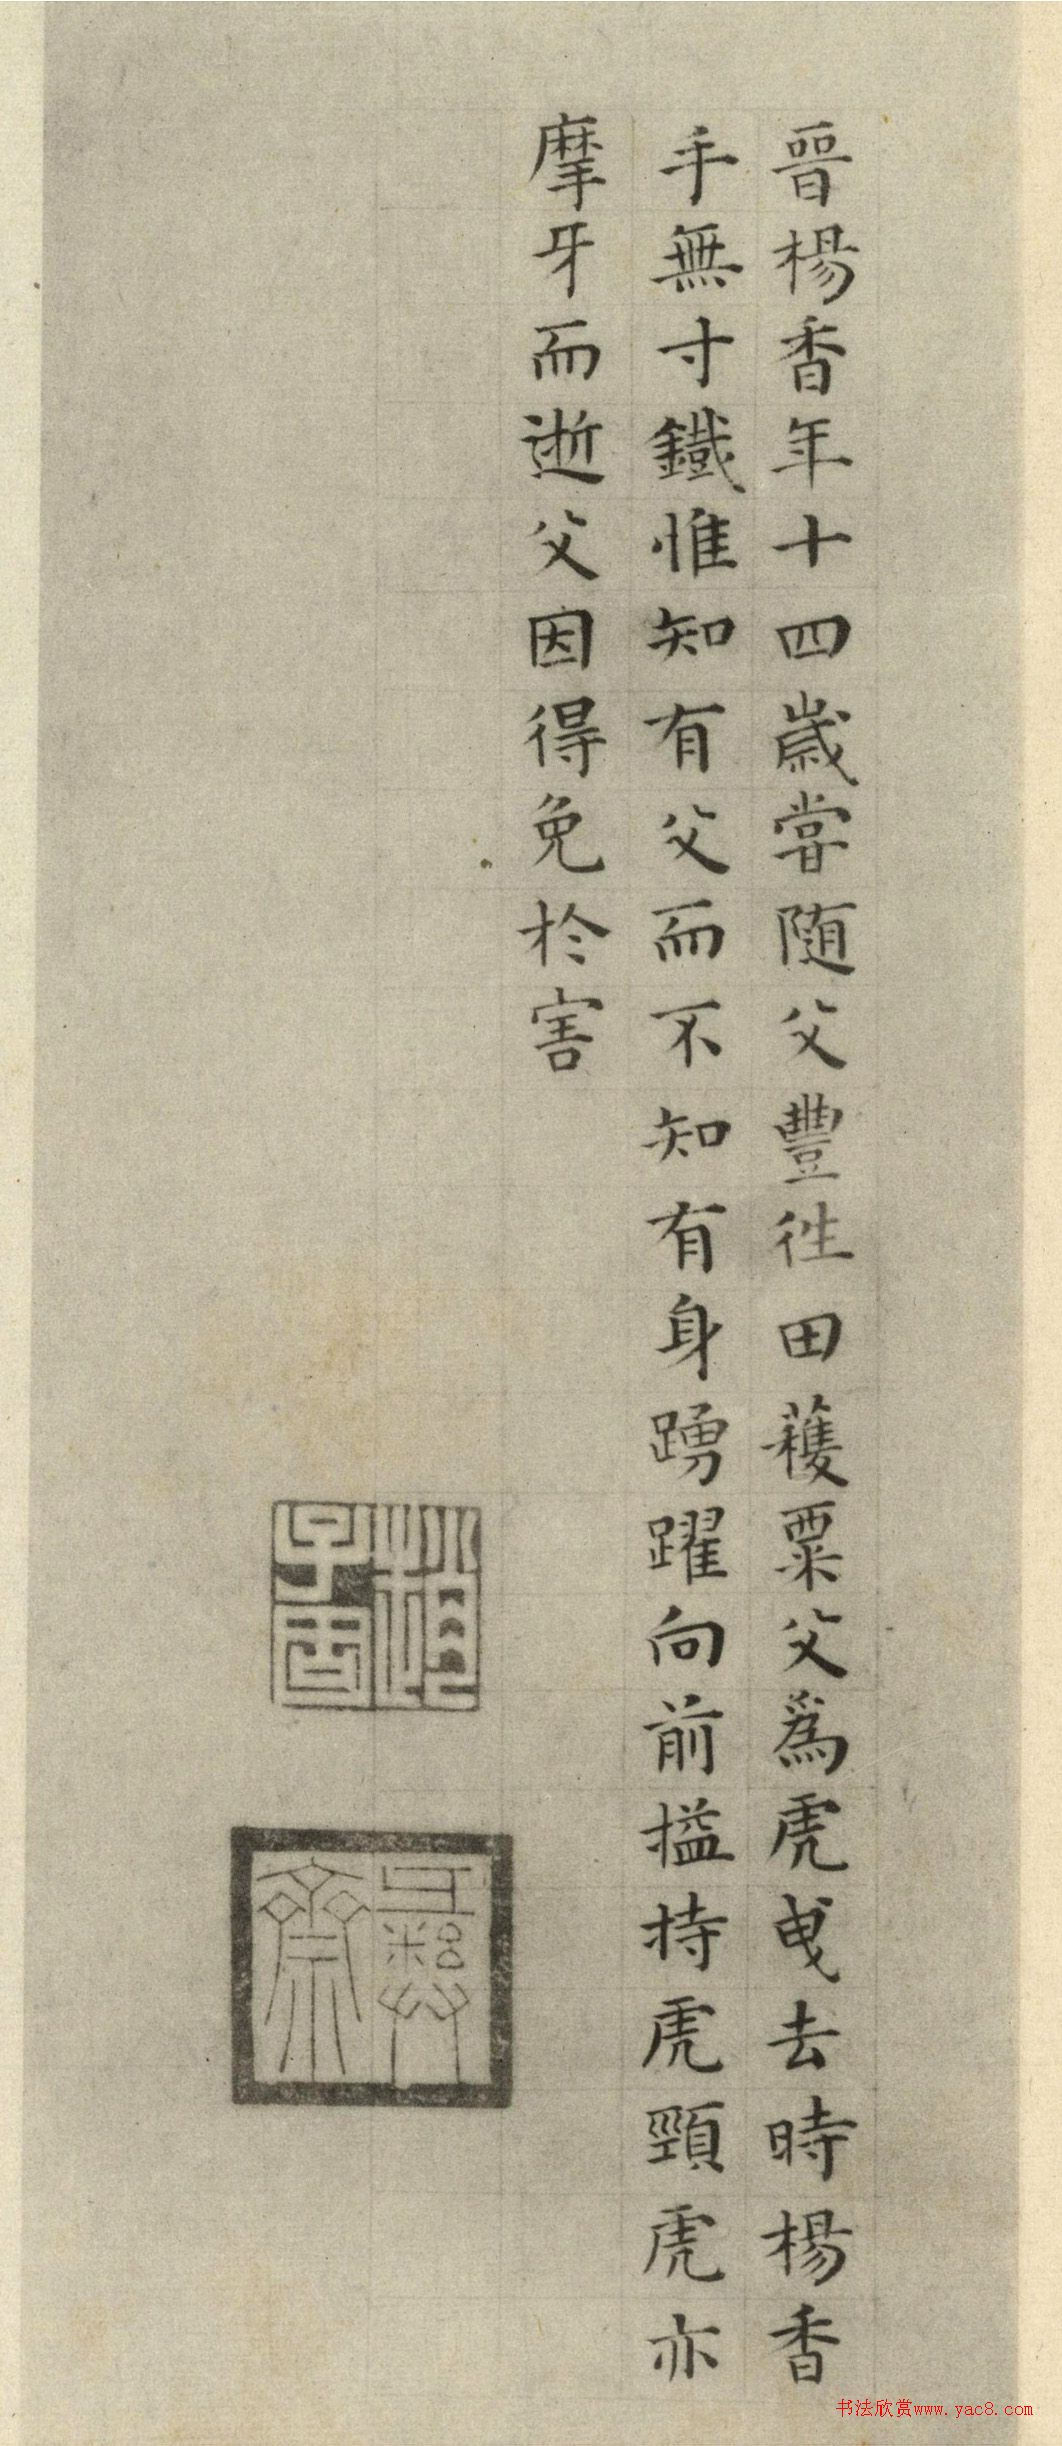 晉楊香年十四歲嘗随父豐徃田穫粟父為虎曵去時楊香
手無寸鐵惟知有父而不知有身踴躍向前搤持虎頸虎亦
摩牙而逝父因得免於害
书法欣赏www.yac8.com